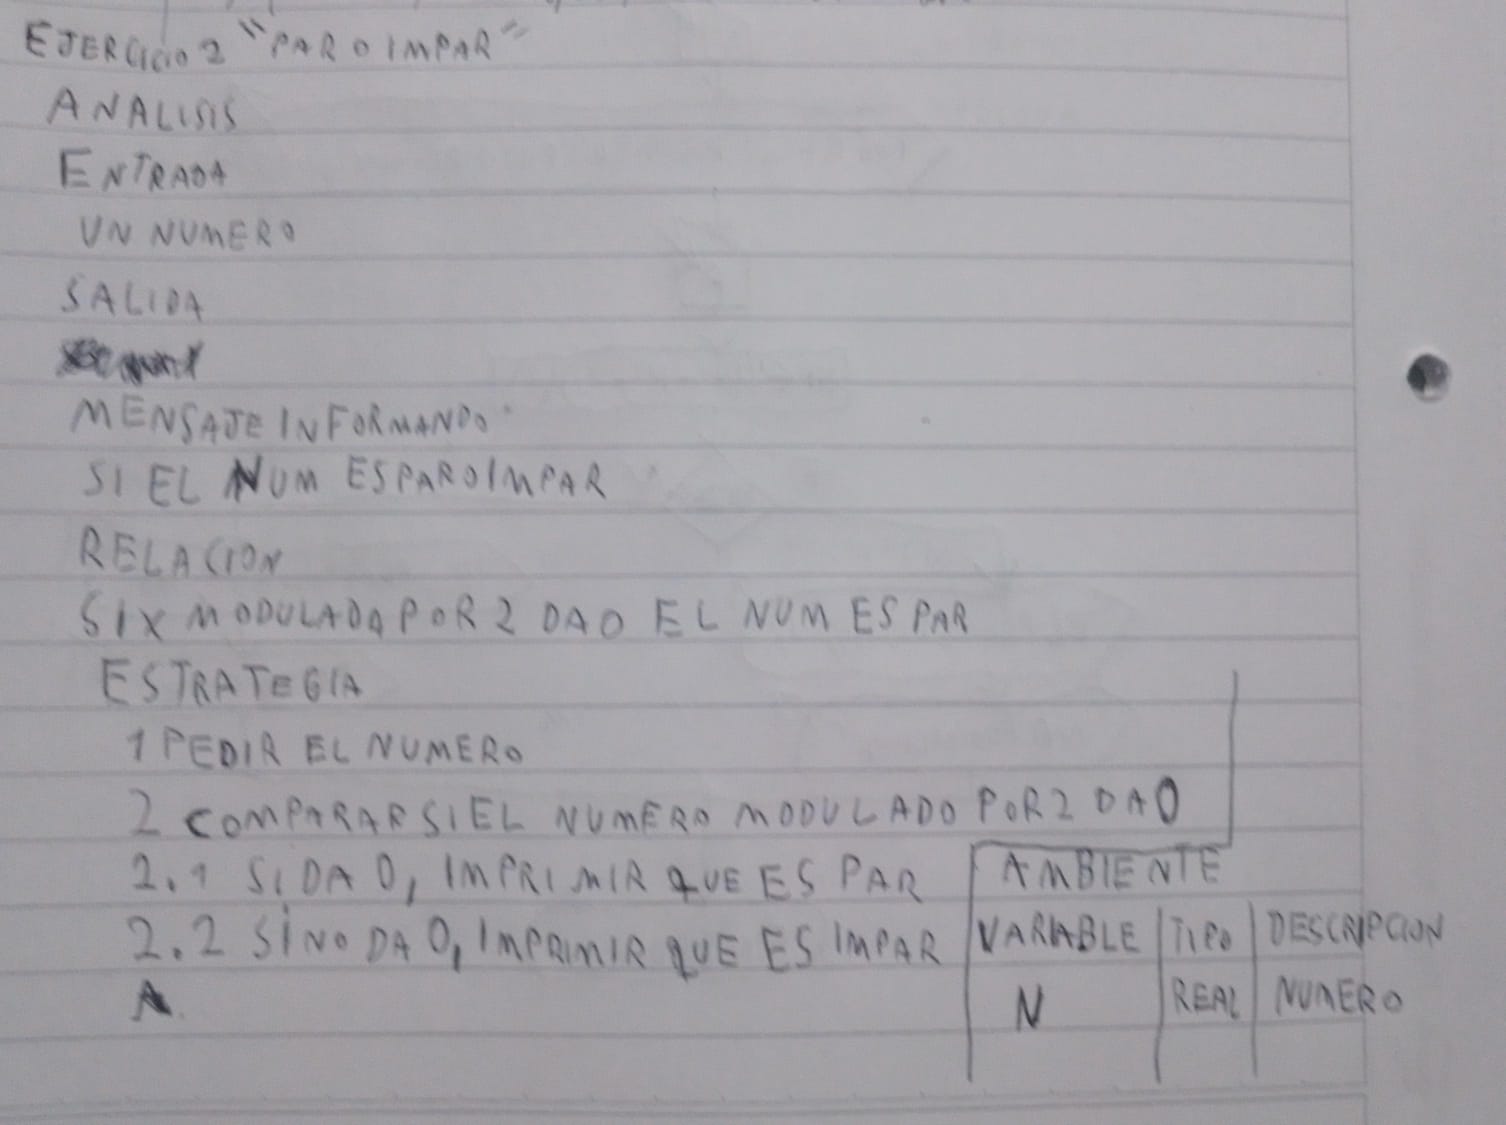 EJERCICIO 2 "PAR O IMPAR"
ANALISIS
ENTRADA
UN NUMERO
SALIDA
MENSAJE INFORMANDO
SI EL NUM ES PAR O IMPAR
RELACION
SI X MODULADA POR 2 DA 0 EL NUM ES PAR
ESTRATEGIA
1 PEDIR EL NUMERO
2 COMPARAR SI EL NUMERO MODULADO POR 2 DA 0
2.1 SI DA 0, IMPRIMIR QUE ES PAR
2.2 SI NO DA 0, IMPRIMIR QUE ES IMPAR
A
AMBIENTE
VARIABLE TIPO DESCRIPCION
N REAL NUMERO